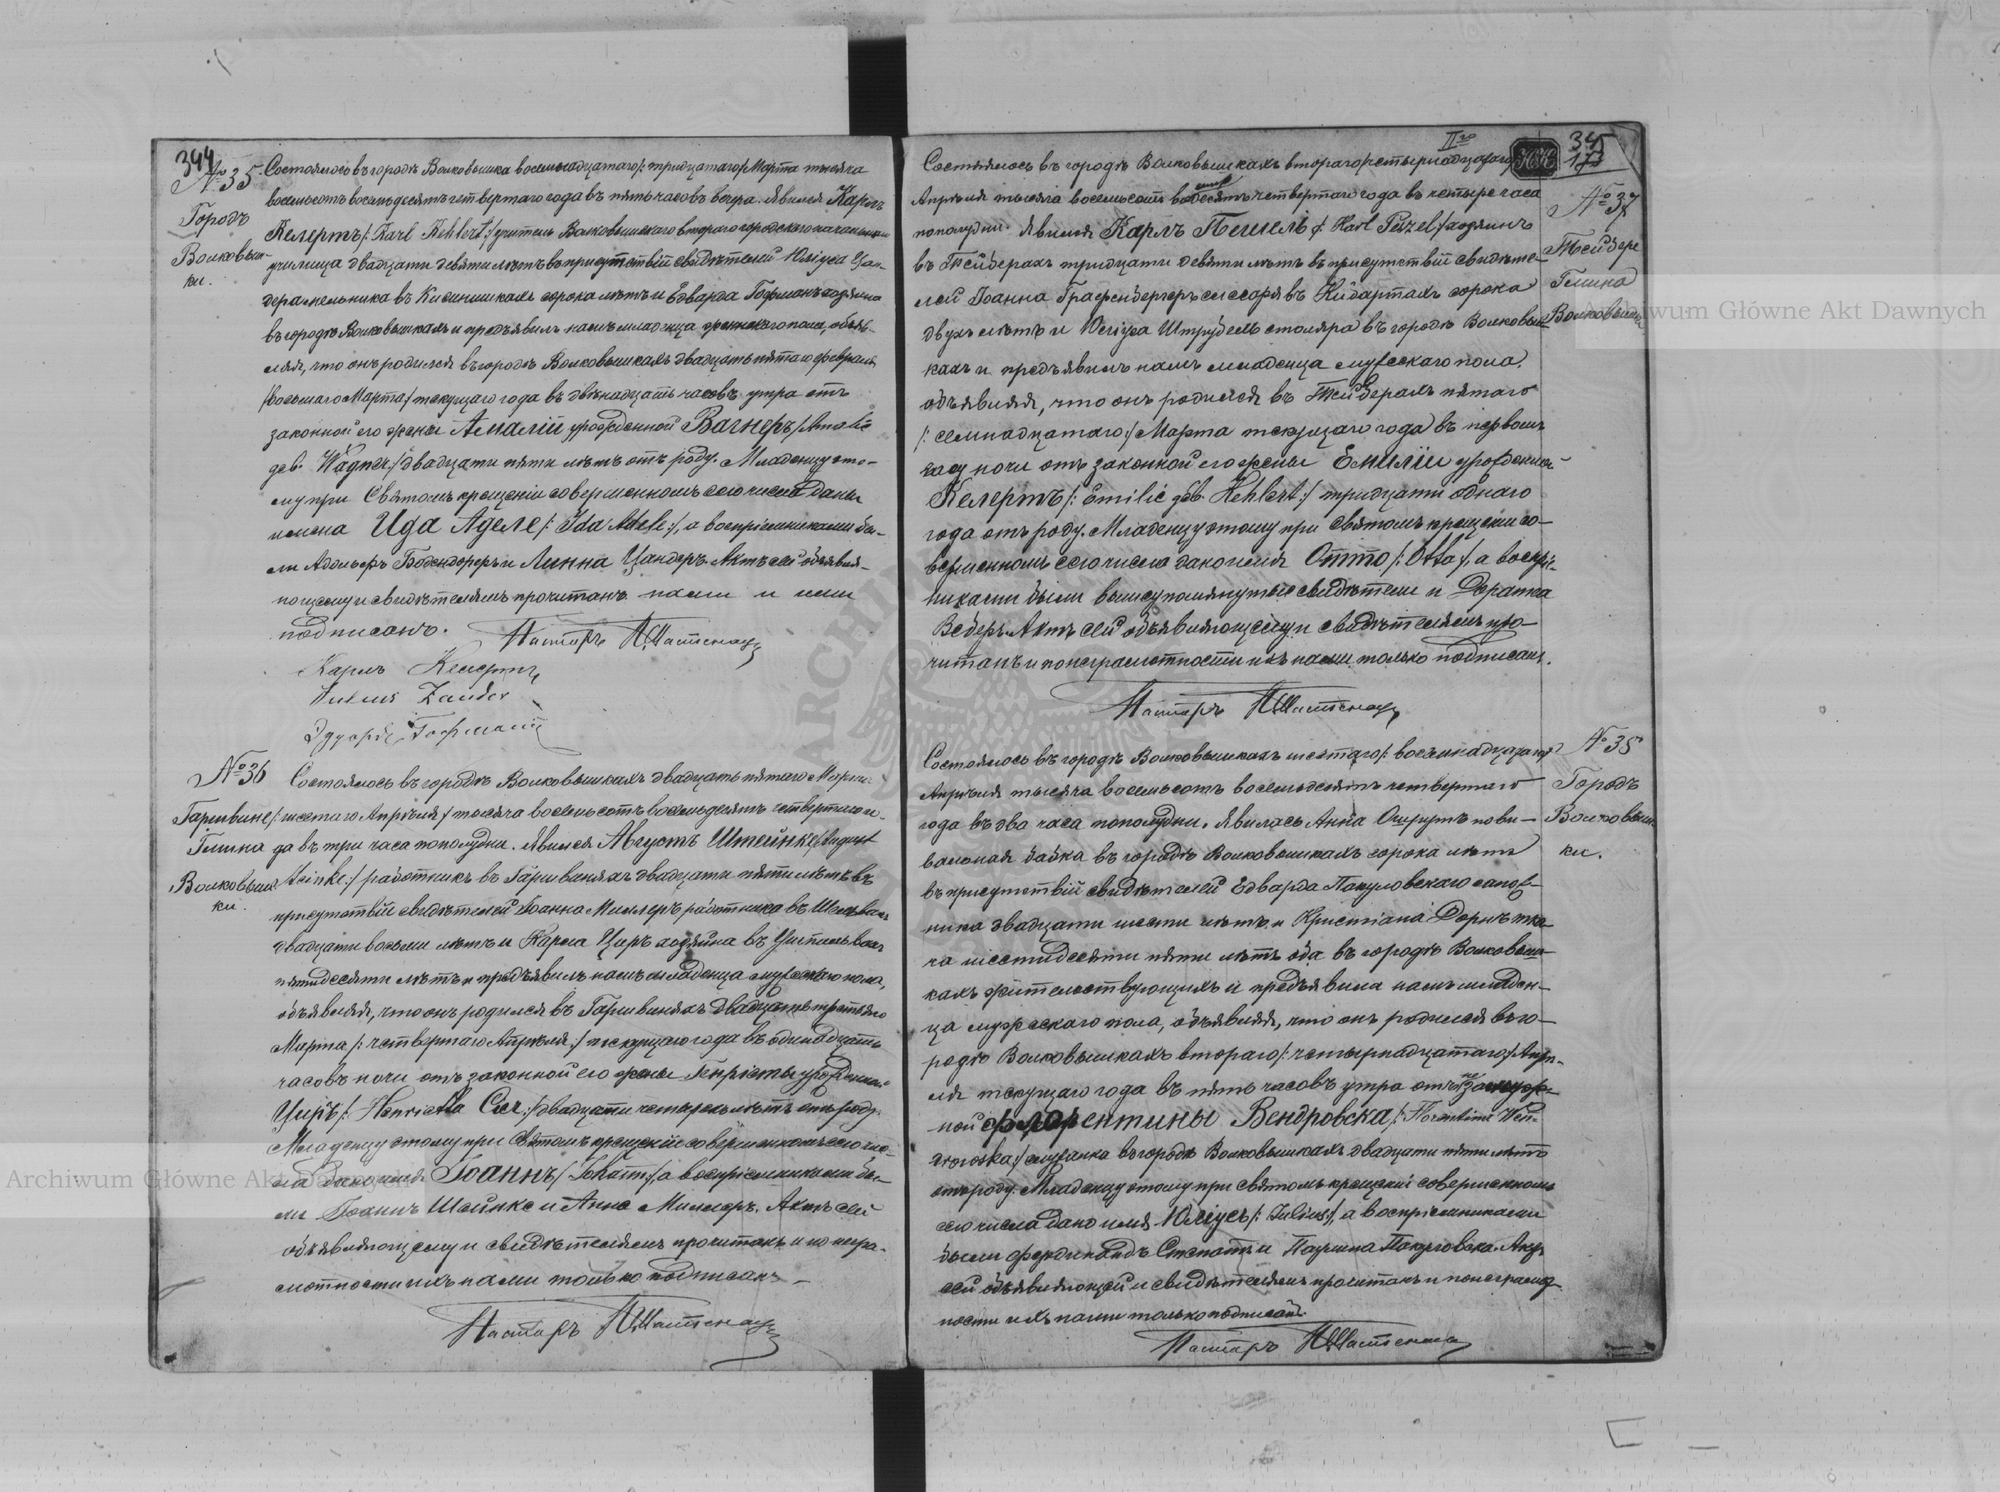 344
№ 35
Городъ
Волковыш-
ки.
Состоялось въ городѣ Волковышка восемнадцатаго /: тридцатаго /: Марта тысяча
восемьсотъ восемьдесятъ четвертаго года въ пять часовъ вечера. Явился Карлъ
Келертъ /: Karl Kehlert :/ учитель Волковышскаго втораго городскаго начальнаго
училища двадцати девяти лѣтъ въ присутствіи свидѣтелей Юліуса Цан-
дера мельника въ сорока лѣтъ и Едварда Гофманъ хозяина
въ городѣ Волковышкахъ и предъявилъ намъ младенца женскаго пола, объяв-
ляя, что онъ родился въ городѣ Волковышкахъ двадцать пятаго февраля
/: восьмаго Марта :/ текущаго года въ двѣнадцать часовъ утра отъ
законной его жены Амаліи урожденной Вагнеръ /: Amalie
geb. Wagner :/ двадцати пяти лѣтъ отъ роду. Младенцу это-
му при Святомъ крещеніи совершенномъ сего числа даны
имена Ида Аделе /: Ida Adele :/, а воспріемниками бы-
ли Адольфъ Боденdорферъ и Линна Цандеръ. Актъ сей объявля-
ющему и свидѣтелямъ прочитанъ нами и ими
подписанъ.
Пасторъ
Карлъ Келертъ
Julius Zander
Эдуардъ Гофманъ
№ 36
Гаршвине
Гмина
Волковыш-
ки.
Состоялось въ городѣ Волковышкахъ двадцать пятаго Марта
/: шестаго Апрѣля :/ тысяча восемьсотъ восемьдесятъ четвертаго го-
да въ три часа пополудни. Явился Августъ Штейнке /: August
Steinke :/ работникъ въ Гаршвиняхъ двадцати пяти лѣтъ въ
присутствіи свидѣтелей Іоанна Миллеръ работника въ
двадцати восьми лѣтъ и Карла Циръ хозяина въ
пятидесяти лѣтъ и предъявилъ намъ младенца мужескаго пола,
объявляя, что онъ родился въ Гаршвиняхъ двадцать третьяго
Марта /: четвертаго Апрѣля :/ текущаго года въ одинадцать
часовъ ночи отъ законной его жены Генріеты урожденной
Циръ /: Henrietta :/ двадцати четырехъ лѣтъ отъ роду.
Младенцу этому при Святомъ крещеніи совершенномъ сего чис-
ла дано имя Іоаннъ /: Johann :/, а воспріемниками бы-
ли Іоаннъ Штейнке и Анна Миллеръ. Актъ сей
объявляющему и свидѣтелямъ прочитанъ и по негра-
мотности ихъ нами только подписанъ.
Пасторъ
IIго
345
173
№ 37
Тейбере
Гмина
Волковышки
Состоялось въ городѣ Волковышкахъ втораго /: четырнадцатаго
Апрѣля тысяча восемьсотъ восемьдесятъ четвертаго года въ четыре часа
пополудни. Явился Карлъ Пецель /: Karl Petzel :/ хозяинъ
въ Тейберахъ тридцати девяти лѣтъ въ присутствіи свидѣте-
лей Іоанна Графенбергеръ слесаря въ Кибартахъ сорока
двухъ лѣтъ и Юліуса Штрубель столяра въ городѣ Волковыш-
кахъ и предъявилъ намъ младенца мужескаго пола,
объявляя, что онъ родился въ Тейберахъ пятаго
/: семнадцатаго :/ Марта текущаго года въ первомъ
часу ночи отъ законной его жены Емиліи урожденной
Келертъ /: Emilie geb. Kehlert :/ тридцати однаго
года отъ роду. Младенцу этому при Святомъ крещеніи со-
вершенномъ сего числа дано имя Отто /: Otto :/, а воспріем-
никами были вышеупомянутые свидѣтели и Доратта
Веберъ. Актъ сей объявляющему и свидѣтелямъ про-
читанъ и по неграмотности ихъ нами только подписанъ.
Пасторъ
№ 38
Городъ
Волковыш-
ки.
Состоялось въ городѣ Волковышкахъ шестаго /: восемнадцатаго
Апрѣля тысяча восемьсотъ восемьдесятъ четвертаго
года въ два часа пополудни. Явилась Анна Ошрутъ пови-
вальная бабка въ городѣ Волковышкахъ сорока лѣтъ
въ присутствіи свидѣтелей Едварда Пакуловскаго сапож-
ника двадцати шести лѣтъ и Кристіана Дорнъ тка-
ча шестидесяти пяти лѣтъ оба въ городѣ Волковыш-
кахъ жительствующихъ и предъявила намъ младен-
ца мужескаго пола, объявляя, что онъ родился въ го-
родѣ Волковышкахъ втораго /: четырнадцатаго :/ Апрѣ-
ля текущаго года въ пять часовъ утра отъ незамуж-
ной Флорентины Вендровска /: Florentine Wen-
drowska :/ служанка въ городѣ Волковышкахъ двадцати пяти лѣтъ
отъ роду. Младенцу этому при святомъ крещеніи совершенномъ
сего числа дано имя Юліусъ /: Julius :/, а воспріемниками
были Фердинандъ и Паулина Пакуловска. Актъ
сей объявляющей и свидѣтелямъ прочитанъ и по неграмот-
ности ихъ нами только подписанъ.
Пасторъ
Archiwum Główne Akt Dawnych
Archiwum Główne Akt Dawnych